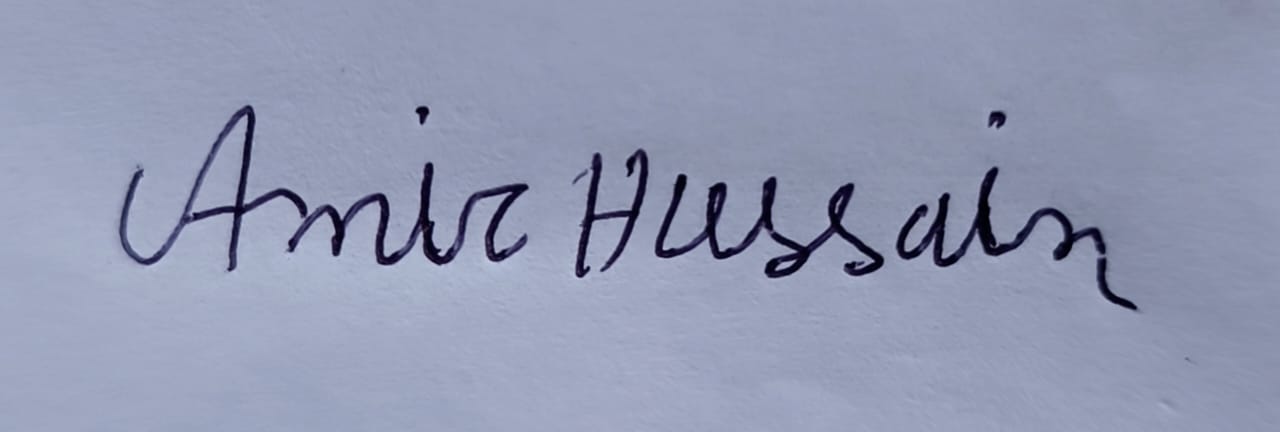 Amir Hussain